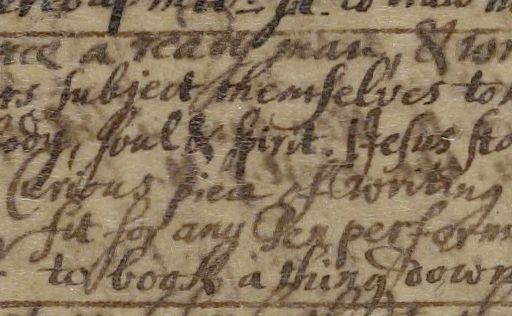 a ready man, & wr
rs subject themselves to
body, soul & spirit. Jesus sta
Curious piece of writing
fit for any Sex perform
to book a thing down